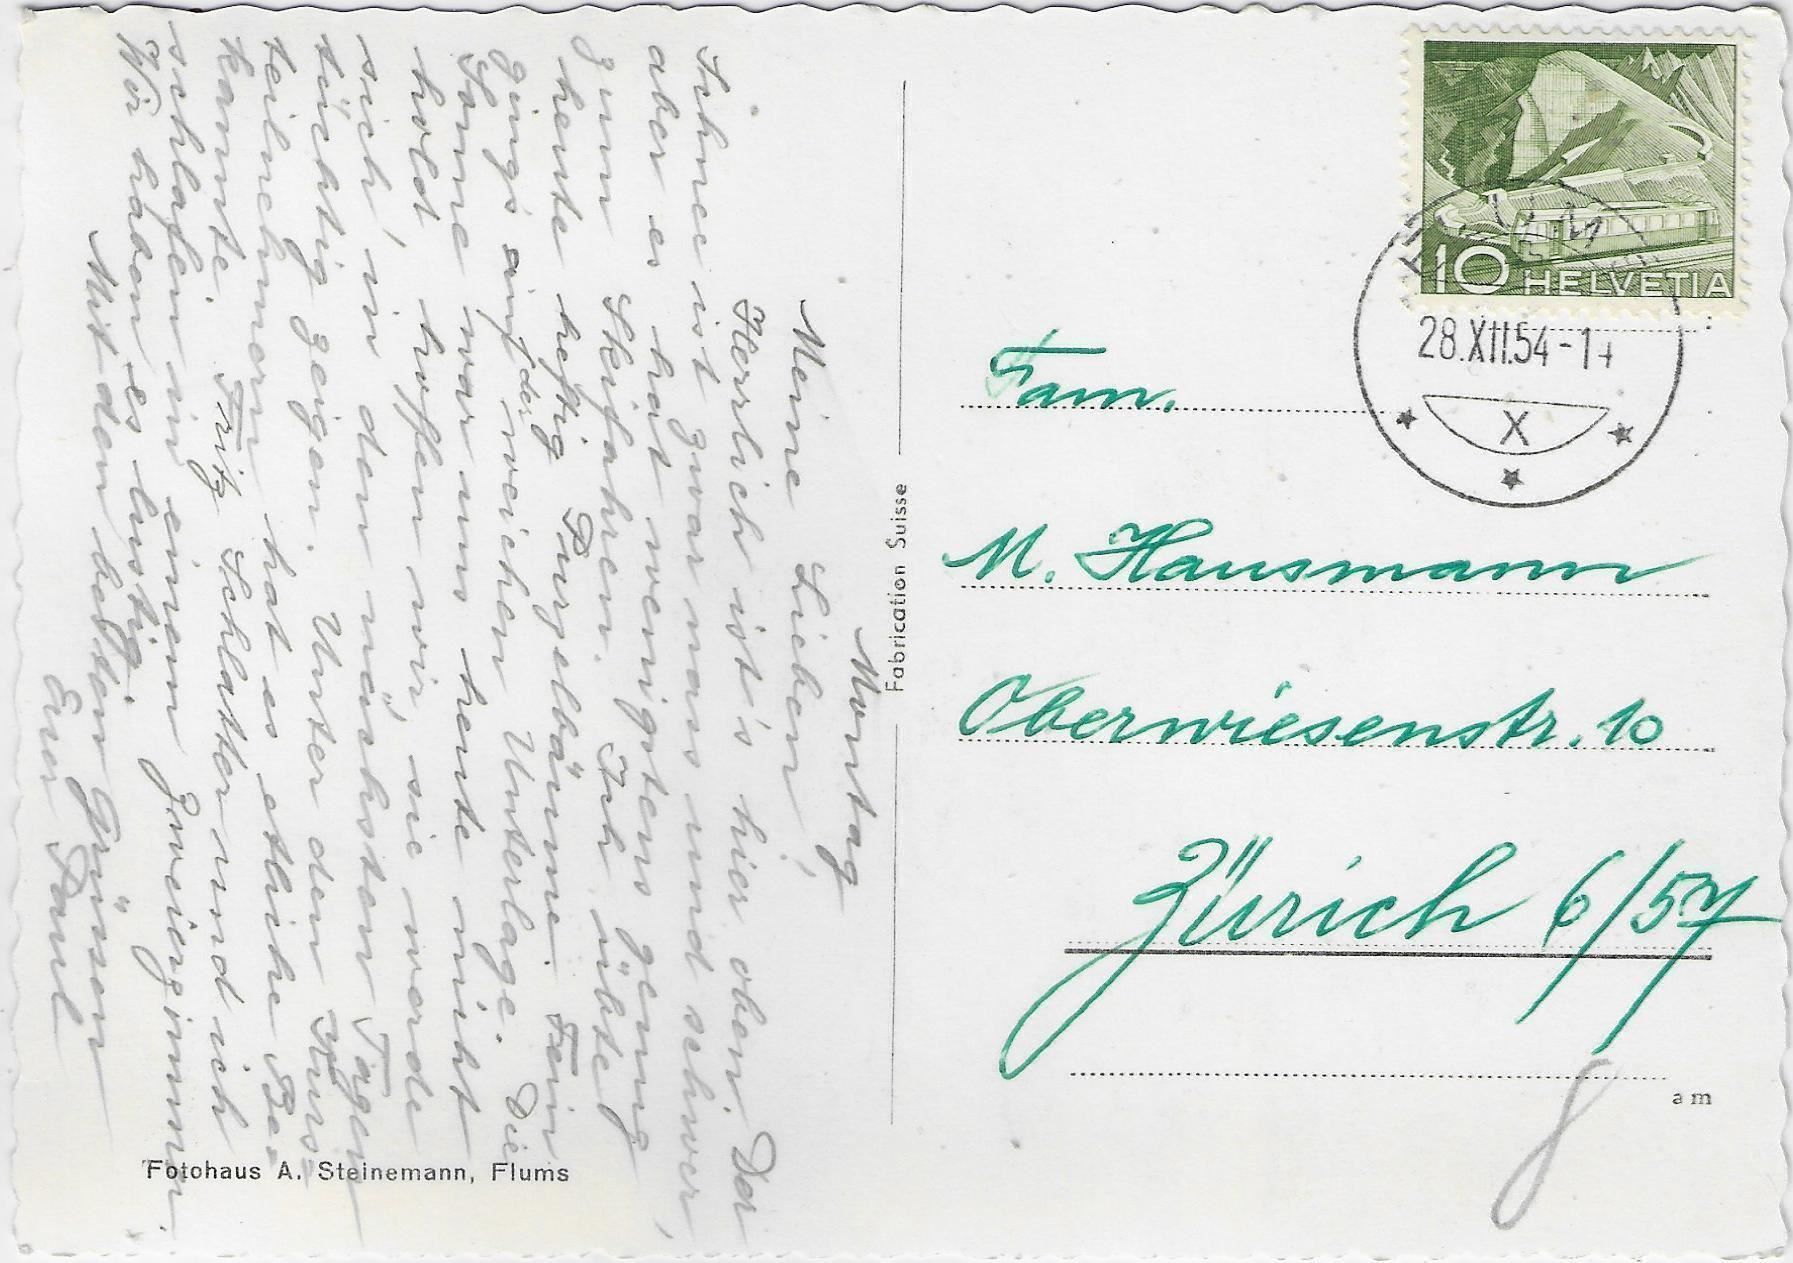 Montag
Meine Lieben,
Herrlich ist's hier oben. Der
Schnee ist zwar nass und schwer,
aber es hat wenigstens genug
zum Skifahren. Ich übte
heute heftig Purzelbäume. Fein
ging's auf der weichen Unterlage. Die
Sonne war uns heute nicht
hold, hoffen wir, sie werde
sich in den nächsten Tagen
tüchtig zeigen. Unter den Kurs-
teilnehmern hat es etliche Be-
kannte. Fritz Schlatter und ich
schlafen in einem Zweierzimmer.
Wir haben es lustig.
Mit den besten Grüssen
Euer Paul
Fotohaus A. Steinemann, Flums
Fabrication Suisse
10 HELVETIA
28.XII.54-1
X
Fam.
M. Hausmann
Oberwiesenstr. 10
Zürich 6/57
a m